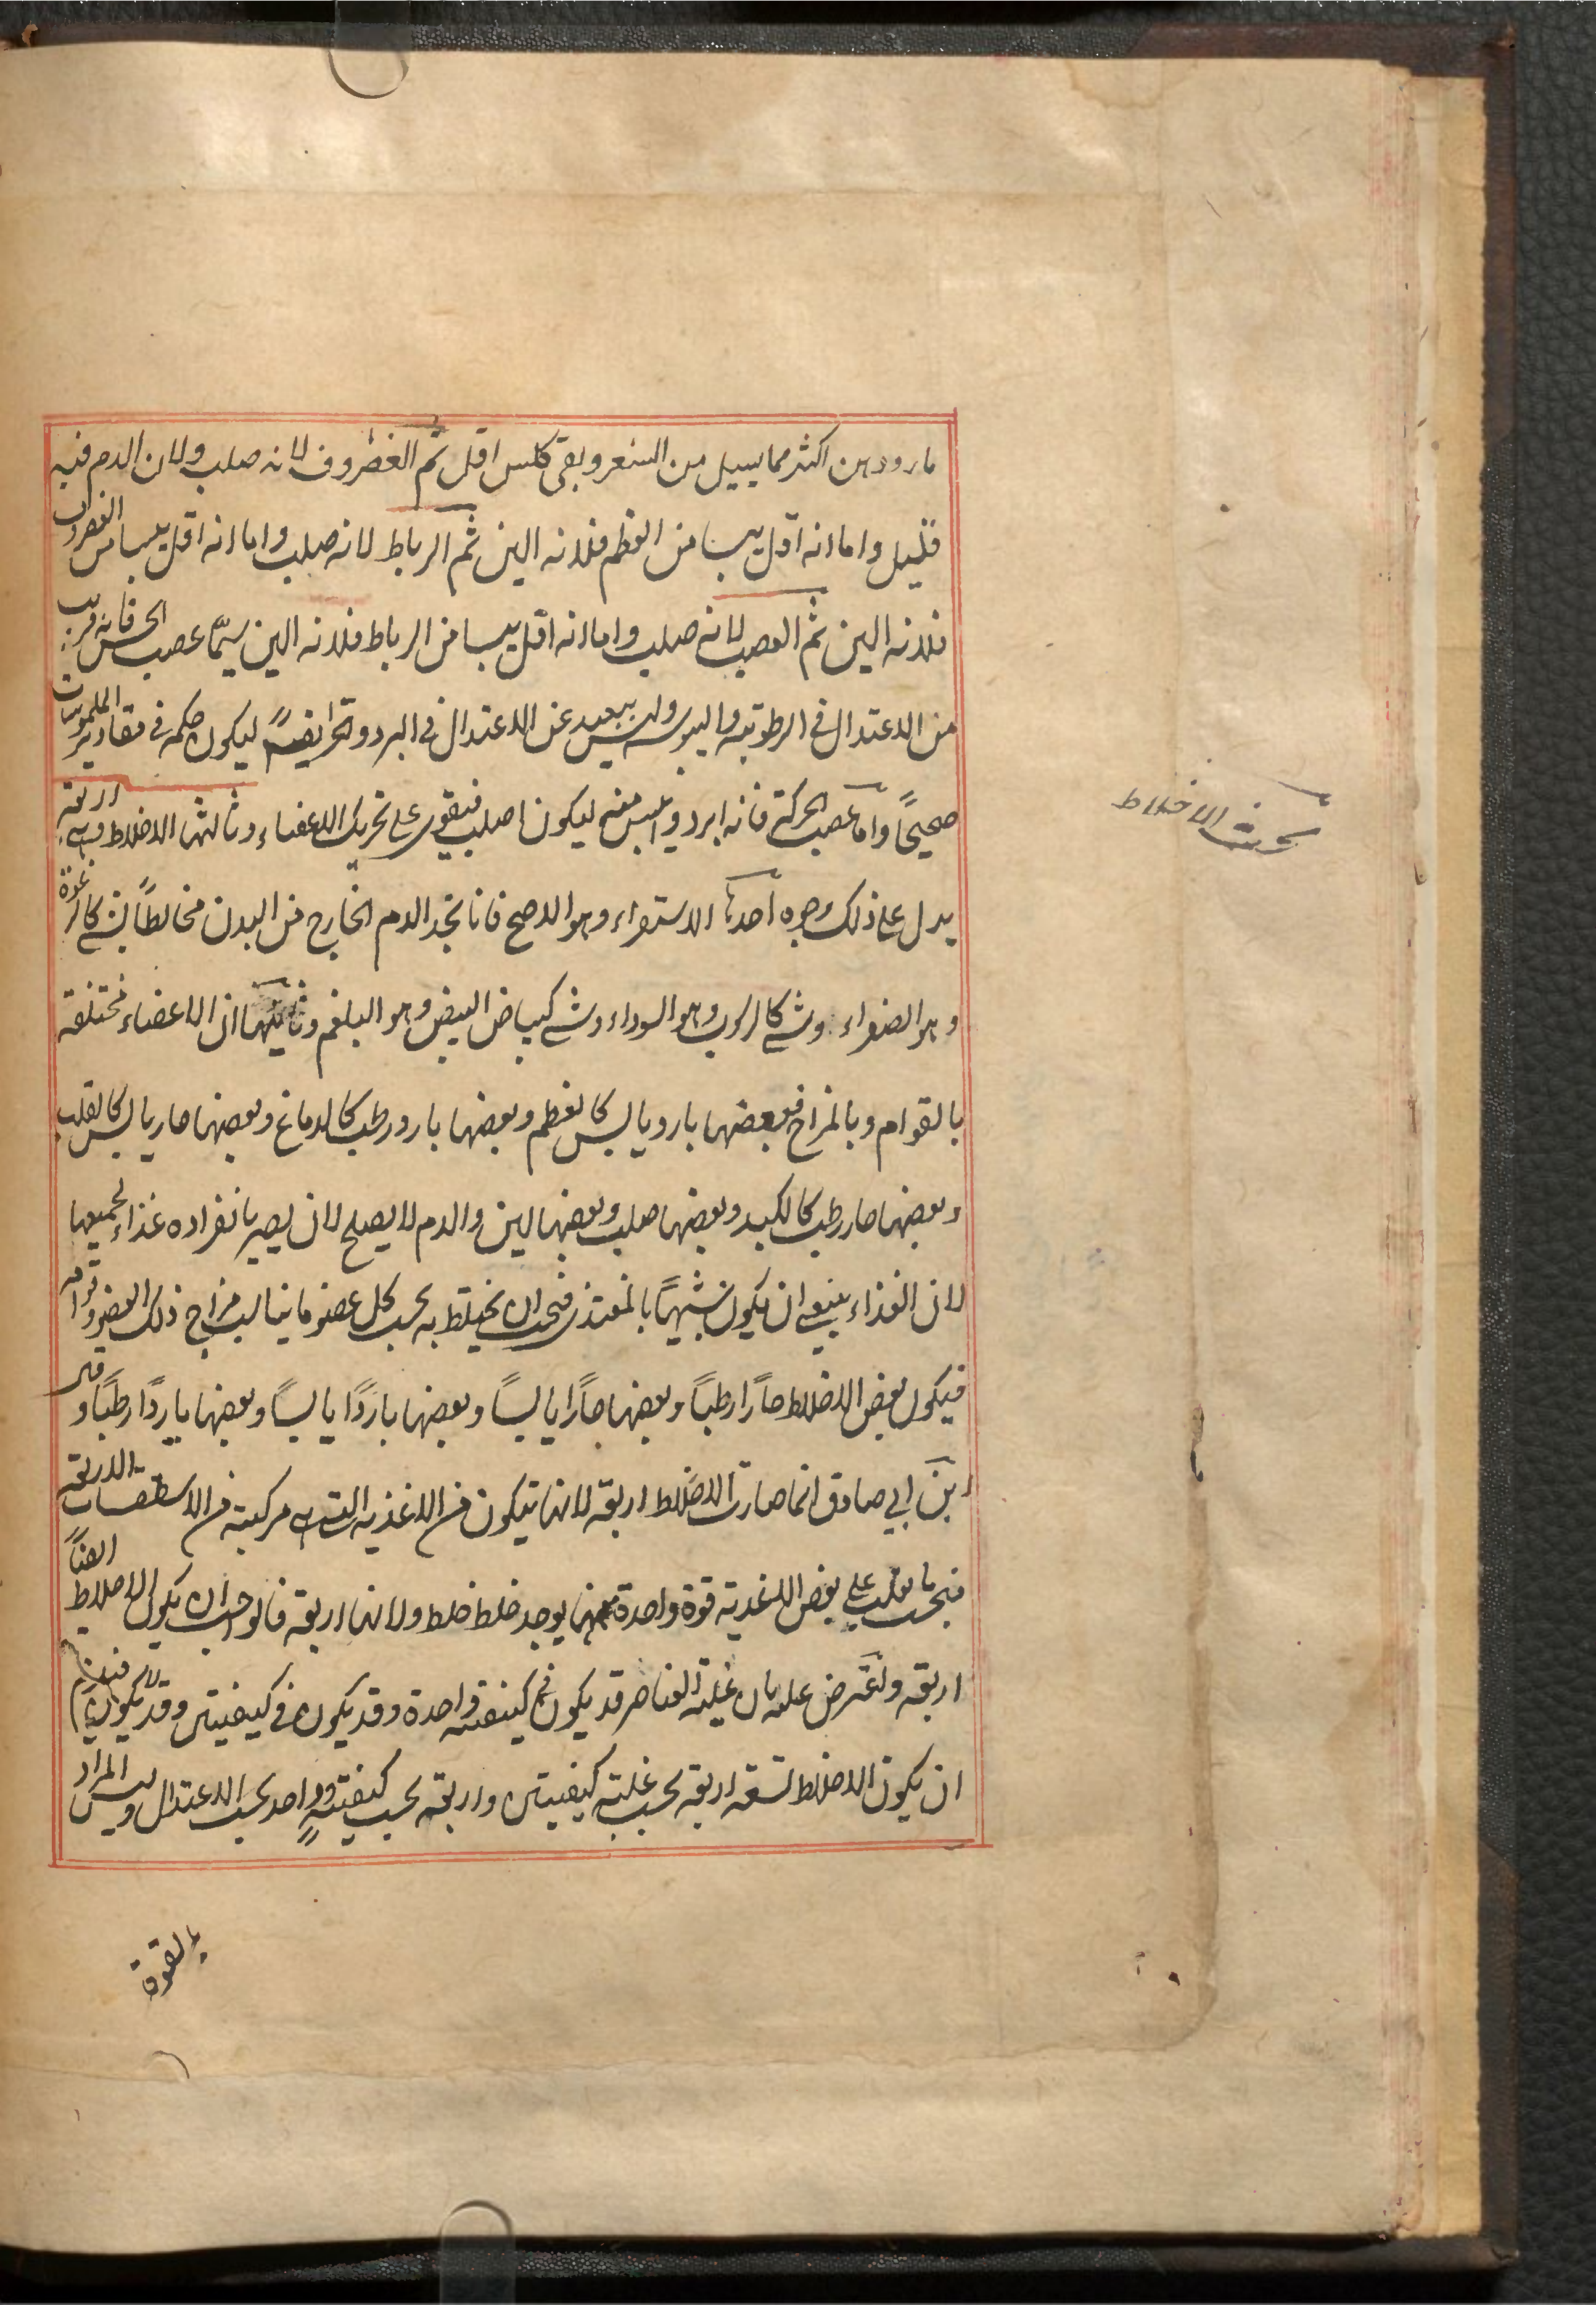 ماء ودهن اكثر مما يسيل من الشعر وبقى كلس اقل ثم الغضروف لانه صلب ولان الدم فيه
قليل واما انه اقل يبسا من العظم فلانه الين ثم الرباط لانه صلب واما انه اقل يبسا من الغضروف
فلانه الين ثم العصب لانه صلب واما انه اقل يبسا من الرباط فلانه الين سيّما عصب الحس فانه قريب
من الاعتدال في الرطوبة واليبوسة وليس ببعيد عن الاعتدال في البرد والحر ايضًا ليكون حكمه في مقادير الملموسات
صحيحًا واما عصب الحركة فانه ابرد وايبس منه ليكون اصلب فيقوى على تحريك الاعضاء وثالثها الاخلاط وهي اربعة
يدل على ذلك وجوه احدها الاستقراء وهو الاصح فانا نجد الدم الخارج من البدن مخالطًا لشئ كالرغوة
وهو الصفراء وشئ كالرسوب وهو السوداء وشئ كبياض البيض وهو البلغم وثانيها ان الاعضاء مختلفة
بالقوام وبالمزاج فبعضها بارد يابس كالعظم وبعضها بارد رطب كالدماغ وبعضها حار يابس كالقلب
وبعضها حار رطب كالكبد وبعضها صلب وبعضها لين والدم لا يصلح لان يصير بانفراده غذاء لجميعها
لان الغذاء ينبغي ان يكون شبيهًا بالمغتذى فيجب ان يختلط به بحسب كل عضو ما يناسب مزاج ذلك العضو وقوامه
فيكون بعض الاخلاط حارًا رطبًا وبعضها حارًا يابسًا وبعضها باردًا يابسًا وبعضها باردًا رطبًا و
ابن ابي صادق انما صارت الاخلاط اربعة لانها تتكون من الاغذية التي هي مركبة من الاسطقسات الاربعة
فبحسب ما يغلب على بعض الاغذية قوة واحدة منها يوجد خلط خلط ولانها اربعة فالواجب ان يكون الاخلاط ايضًا
اربعة ونعترض عليه بان غلبة العناصر قد يكون في كيفية واحدة وقد يكون في كيفيتين وقد لا يكون فيلزم
ان يكون الاخلاط تسعة اربعة بحسب غلبة كيفيتين واربعة بحسب كيفية وواحد بحسب الاعتدال وليس المراد
بالقوة
بحث الاخلاط